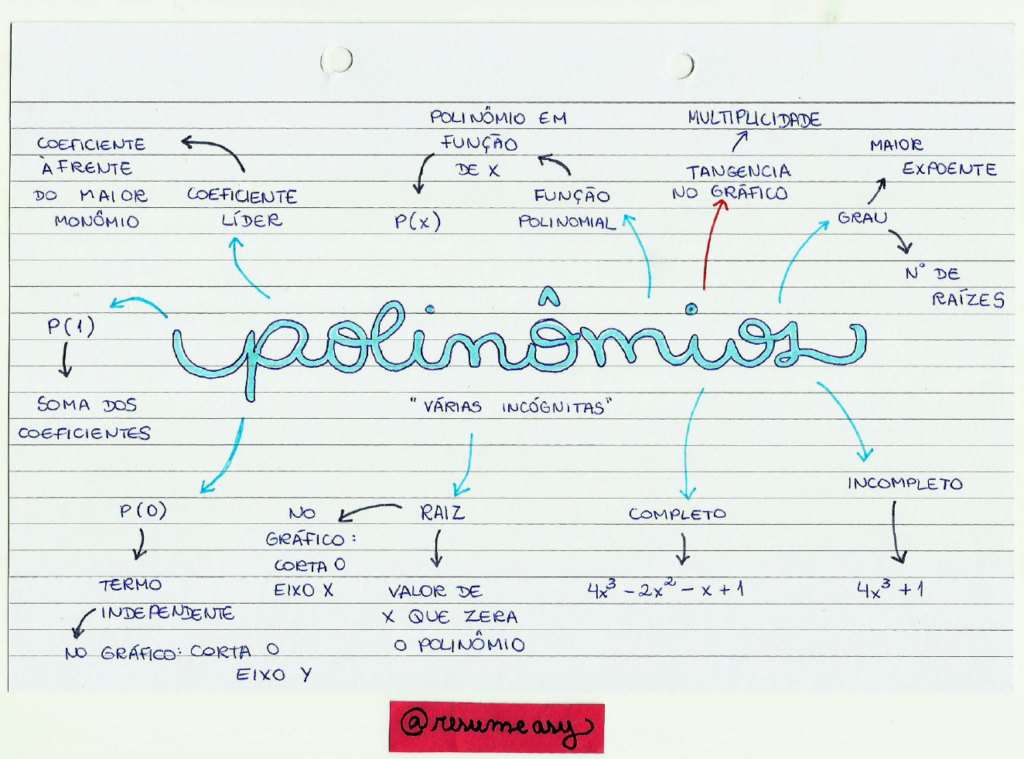 POLINÔMIO EM
FUNÇÃO
DE X
P(x)
FUNÇÃO
POLINOMIAL
MULTIPLICIDADE
TANGENCIA
NO GRÁFICO
MAIOR
EXPOENTE
GRAU
Nº DE
RAÍZES
COEFICIENTE
À FRENTE
DO MAIOR
MONÔMIO
COEFICIENTE
LÍDER
P(1)
SOMA DOS
COEFICIENTES
polinômios
"VÁRIAS INCÓGNITAS"
P(0)
TERMO
INDEPENDENTE
NO GRÁFICO: CORTA O
EIXO Y
NO
GRÁFICO:
CORTA O
EIXO X
RAIZ
VALOR DE
X QUE ZERA
O POLINÔMIO
COMPLETO
4x³ - 2x² - x + 1
INCOMPLETO
4x³ + 1
@resumeasy